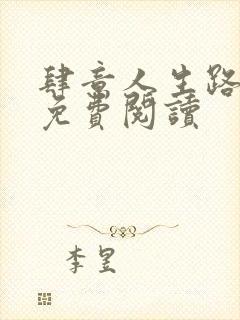 肆意人生路
免費閱讀
李昱